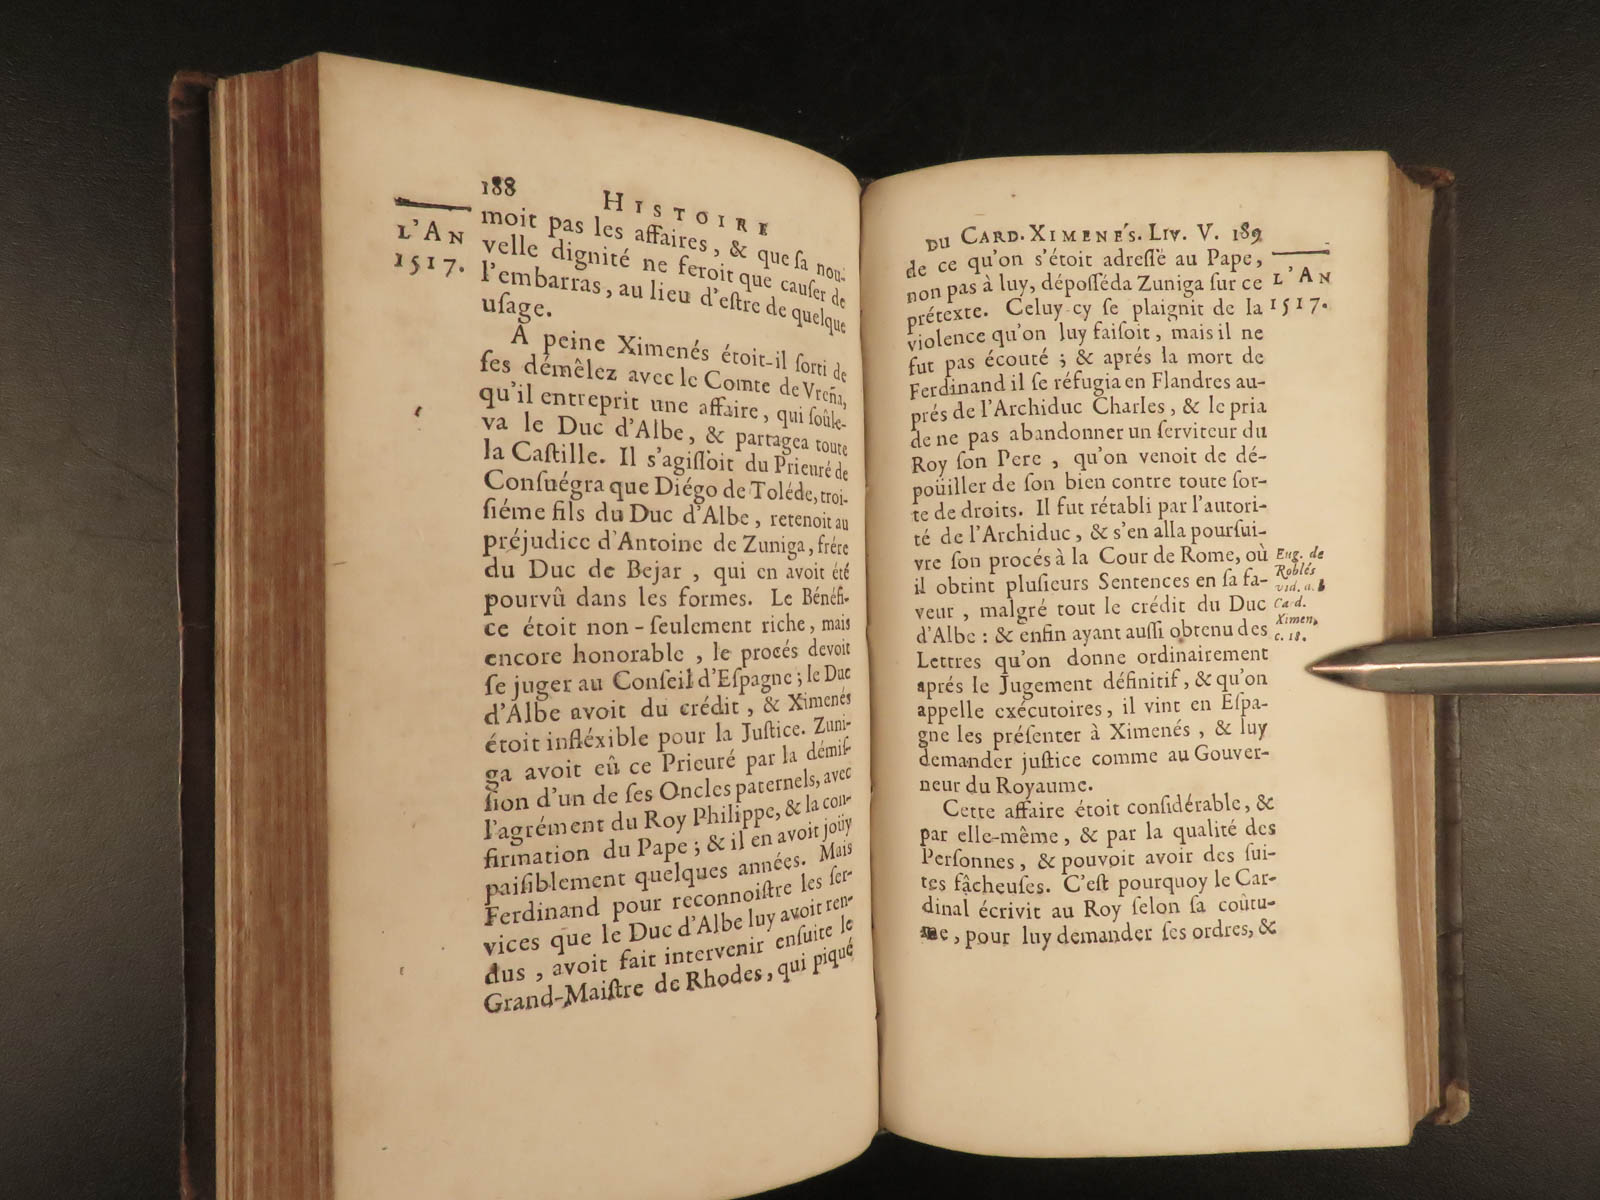 188 HISTOIRE
L'AN
1517.
moit pas les affaires, & que ſa nou-
velle dignité ne feroit que cauſer de
l'embarras, au lieu d'eſtre de quelque
uſage.
A peine Ximenés étoit-il ſorti de
ſes démêlez avec le Comte de Vreña,
qu'il entreprit une affaire, qui ſoûle-
va le Duc d'Albe, & partagea toute
la Caſtille. Il s'agiſſoit du Prieuré de
Conſuégra que Diégo de Toléde, troi-
ſiéme fils du Duc d'Albe, retenoit au
préjudice d'Antoine de Zuniga, frére
du Duc de Bejar, qui en avoit été
pourvû dans les formes. Le Bénéfi-
ce étoit non-ſeulement riche, mais
encore honorable, le procés devoit
ſe juger au Conſeil d'Eſpagne; le Duc
d'Albe avoit du crédit, & Ximenés
étoit infléxible pour la Juſtice. Zuni-
ga avoit eû ce Prieuré par la démiſ-
ſion d'un de ſes Oncles paternels, avec
l'agrément du Roy Philippe, & la con-
firmation du Pape; & il en avoit joüy
paiſiblement quelques années. Mais
Ferdinand pour reconnoiſtre les ſer-
vices que le Duc d'Albe luy avoit ren-
dus, avoit fait intervenir enſuite le
Grand-Maiſtre de Rhodes, qui piqué
DU CARD. XIMENÉS. LIV. V. 189
L'AN
1517.
de ce qu'on s'étoit adreſſé au Pape,
non pas à luy, dépoſſéda Zuniga ſur ce
prétexte. Celuy-cy ſe plaignit de la
violence qu'on luy faiſoit, mais il ne
fut pas écouté; & aprés la mort de
Ferdinand il ſe réfugia en Flandres au-
prés de l'Archiduc Charles, & le pria
de ne pas abandonner un ſerviteur du
Roy ſon Pere, qu'on venoit de dé-
poüiller de ſon bien contre toute ſor-
te de droits. Il fut rétabli par l'autori-
té de l'Archiduc, & s'en alla pourſui-
vre ſon procés à la Cour de Rome, où
il obtint pluſieurs Sentences en ſa fa-
veur, malgré tout le crédit du Duc
d'Albe: & enfin ayant auſſi obtenu des
Lettres qu'on donne ordinairement
aprés le Jugement définitif, & qu'on
appelle exécutoires, il vint en Eſpa-
gne les préſenter à Ximenés, & luy
demander juſtice comme au Gouver-
neur du Royaume.
Cette affaire étoit conſidérable, &
par elle-même, & par la qualité des
Perſonnes, & pouvoit avoir des ſui-
tes fâcheuſes. C'eſt pourquoy le Car-
dinal écrivit au Roy ſelon ſa coûtu-
me, pour luy demander ſes ordres, &
Eug. de
Roblés
vid. a.
Card.
Ximen.
c. 18.